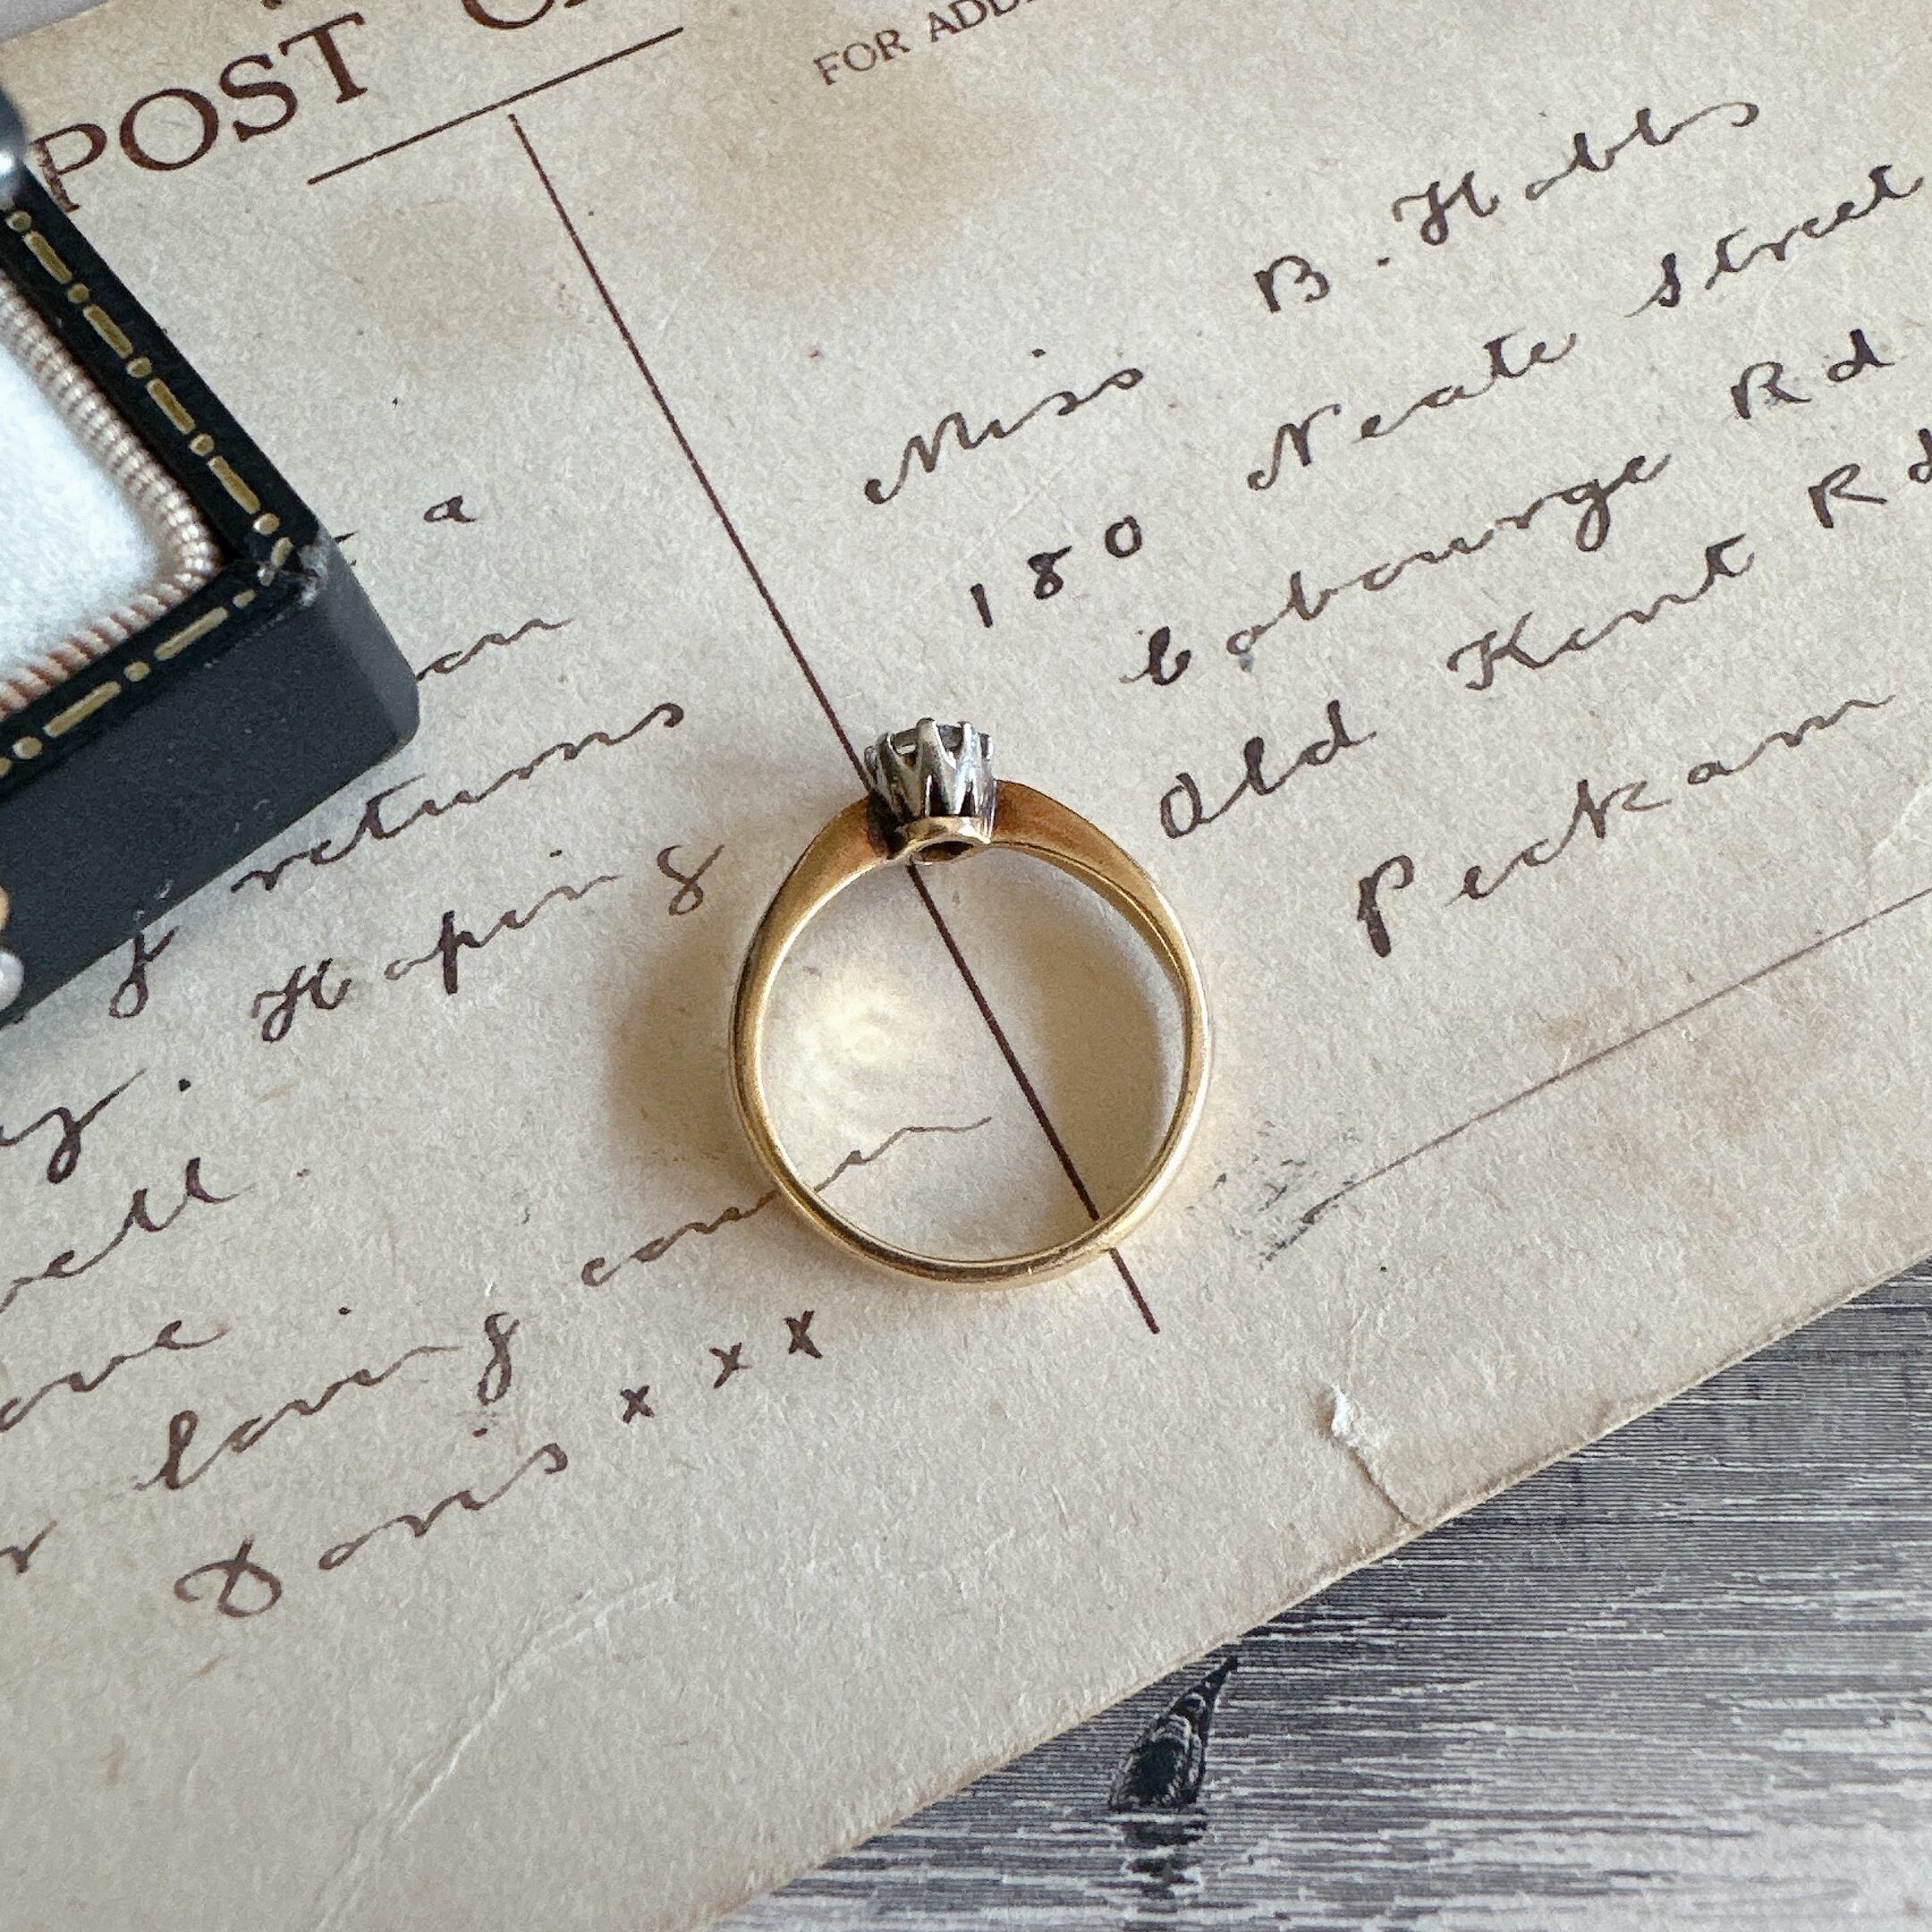 POST
FOR ADD
Miss B. Hobbs
180 Neate Street
Cobourge Rd
Old Kent Rd
Peckam
a
returns
Hoping
loving cousin
Doris
x x x